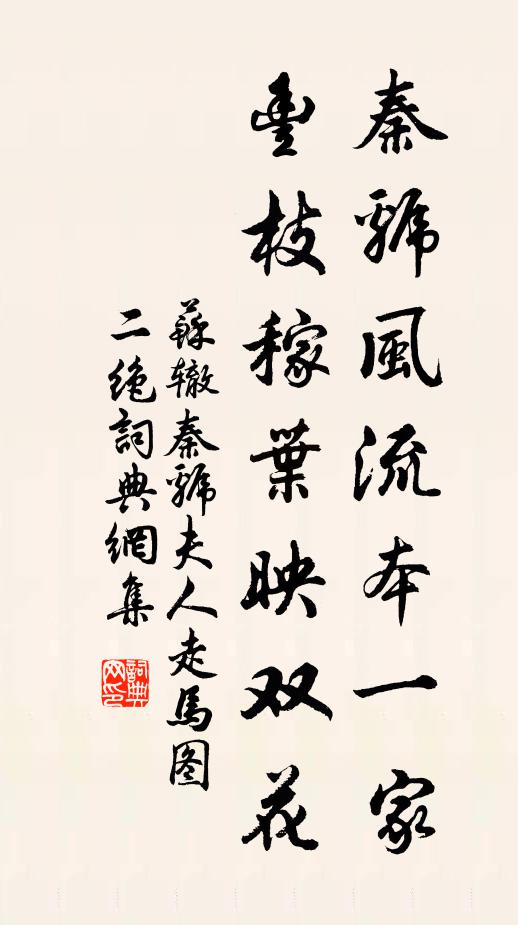 秦虢風流本一家
豐枝稼葉映双花
蘇辙秦虢夫人走馬图
二絶詞典網集
詞典网印